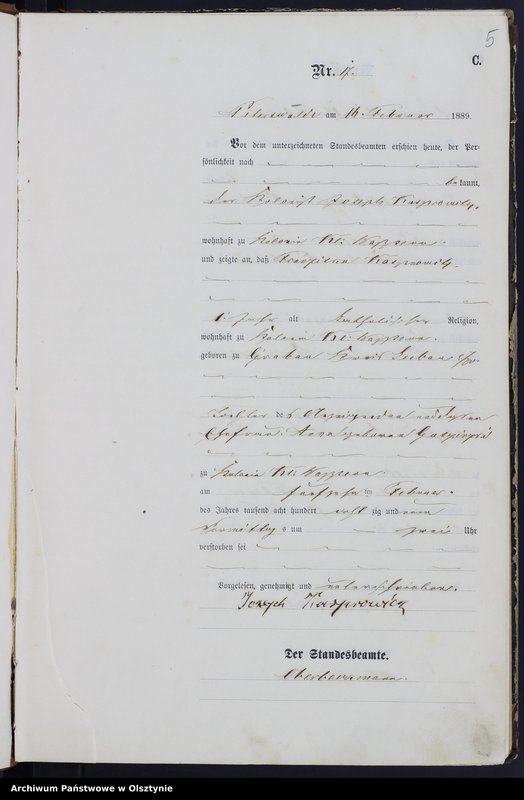 5
C.
Nr. 17.
Peterswalde am 16. Februar 1889.
Vor dem unterzeichneten Standesbeamten erschien heute, der Per-
sönlichkeit nach
bekannt,
der Kolonist Joseph Kasprowitz.
wohnhaft zu Kolonie Kl: Kappern.
und zeigte an, daß Kasprowitz.
1 Jahr alt katholischer Religion,
wohnhaft zu Kolonie Kl: Kappern.
geboren zu Grabau Kreis Loebau
Tochter des Anzeigenden und dessen
Ehefrau Anna geborenen
zu Kolonie Kl: Kappern.
am fünfzehn ten Februar.
des Jahres tausend acht hundert acht zig und neun
Vormittag s um zwei Uhr
verstorben sei
Vorgelesen, genehmigt und unterschrieben.
Joseph Kasprowicz
Der Standesbeamte.
Archiwum Państwowe w Olsztynie